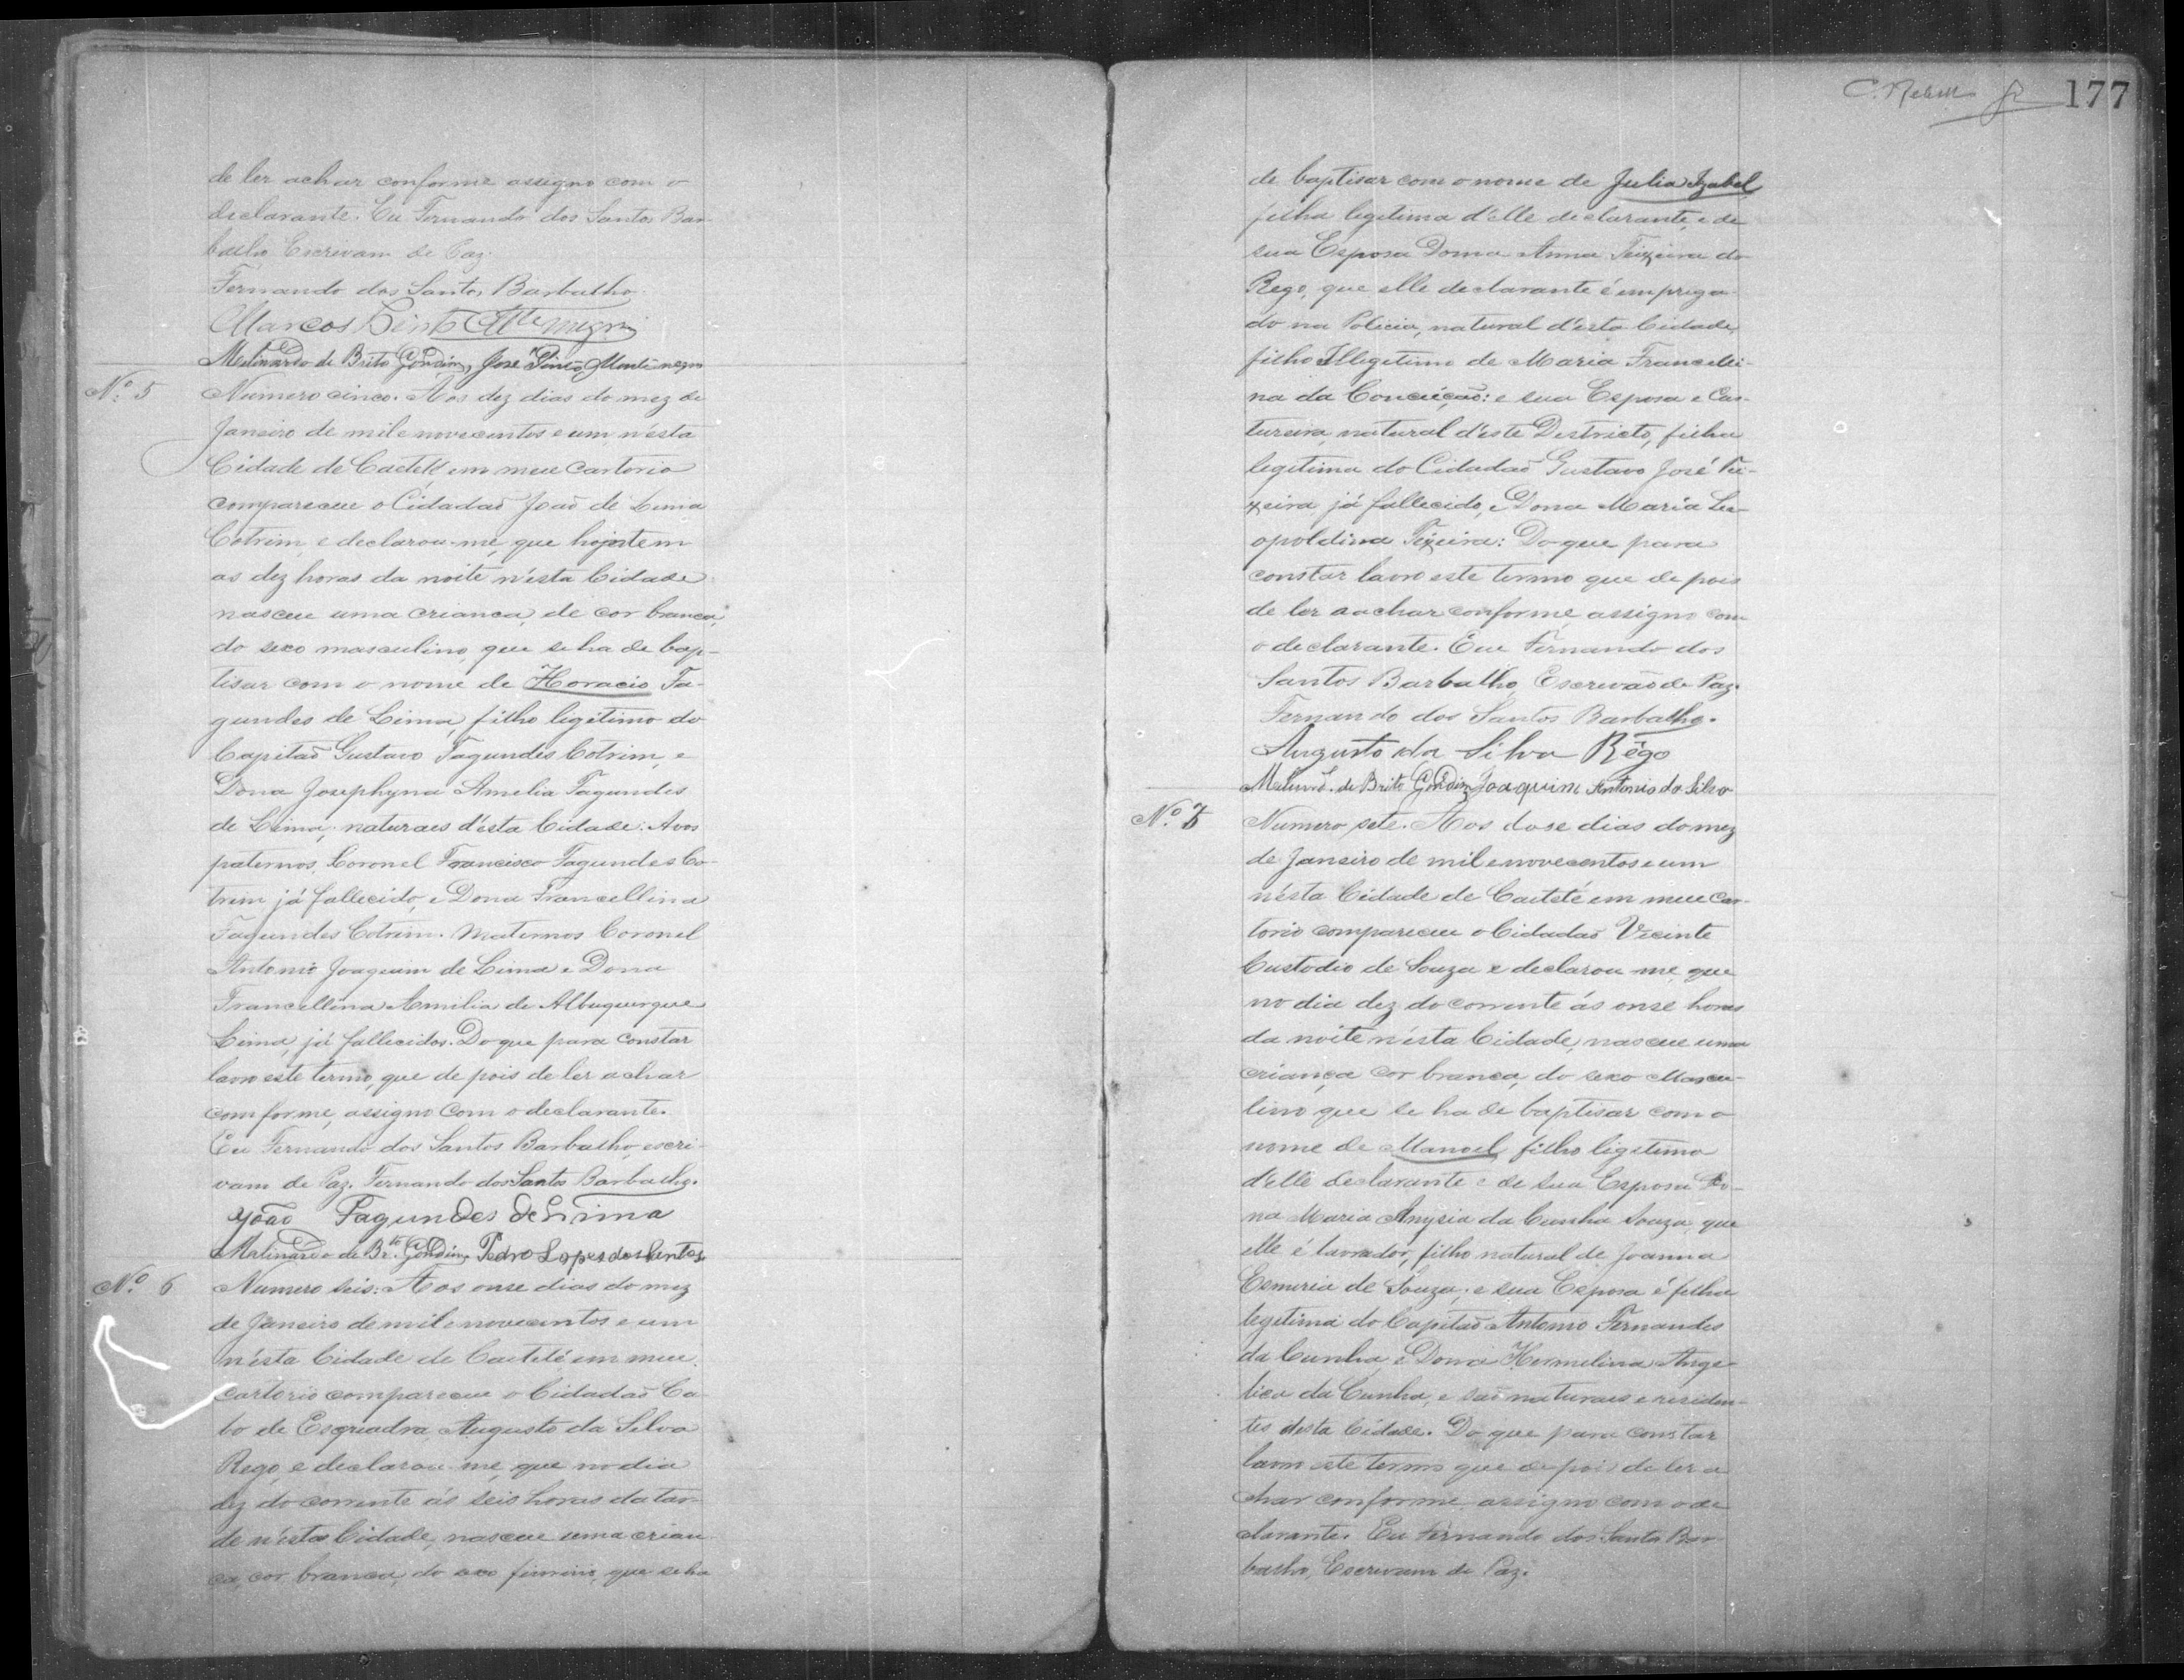 de ler achar conforme assigno com o
declarante. Eu Fernando dos Santos Bar-
balho Escrivam de Paz.
Fernando dos Santos Barbalho.
Marcos Pinto
de Brito Gondim, José Pinto Montenegro
Nº 5
Numero cinco. Aos dez dias do mez de
Janeiro de mil e novecentos e um n'ésta
Cidade de Caeteté em meu cartorio
compareceu o Cidadaõ Joaõ de Lima
Cotrim, e declarou-me, que hontem
as dez horas da noite n'ésta Cidade
nasceu uma creanca, de cor branca,
do sexo masculino, que se ha de bap-
tisar com o nome de Horacio Fa-
gundes de Lima, filho ligitimo do
Capitaõ Gustavo Fagundes Cotrim, e
Dona Josephyna Amelia Fagundes
de Lima, naturaes d'ésta Cidade: Avos
paternos, Coronel Francisco Fagundes Co-
trim já fallecido, e Dona Francellina
Fagundes Cotrim. Maternos Coronel
Antonio Joaquim de Lima e Dona
Francellina Amilia de Albuquerque
Lima, já fallecidos. Do que para constar
lavro este termo, que de pois de ler achar
conforme, assigno com o declarante.
Eu Fernando dos Santos Barbalho, escri-
vam de Paz. Fernando dos Santos Barbalho.
João Fagundes de Lima
de Brto Gondim, Pedro Lopes dos Santos
Nº 6
Numero seis: Aos onse dias do mez
de Janeiro de mil e novecentos e um
n'ésta Cidade de Caeteté em meu
cartorio compareceu o Cidadaõ Ca-
bo de Esquadra, Augusto da Silva
Rego, e declarou-me, que no dia
dez do corrente ás seis horas da tar-
de n'ésta Cidade, nasceu uma crian-
ça, cor branca, do sexo feminino, que se ha
177
de baptisar com o nome de Julia Izabel
filha legitima d'elle declarante, e de
sua Esposa Dona Anna Teixeira do
Rego, que elle declarante é emprega-
do na Policia, natural d'ésta Cidade,
filho Illegitimo de Maria Francelli-
na da Conceiçaõ: e sua Esposa e Cos-
tureira, natural d'éste Destricto, filha
legitima do Cidadaõ Gustavo José Tei-
xeira já fallecido, e Dona Maria Le-
opoldina Teixeira: Do que para
constar lavro este termo que de pois
de ler a achar conforme, assigno com
o declarante. Eu Fernando dos
Santos Barbalho, Escrivaõ de Paz.
Fernando dos Santos Barbalho.
Augusto da Silva Rêgo
de Brito Gondim Joaquim Antonio da Silva
Nº 7
Numero sete. Aos dose dias do mez
de Janeiro de mil e novecentos e um
n'ésta Cidade de Caeteté em meu car-
torio compareceu o Cidadaõ Vicente
Custodio de Souza e declarou-me, que
no dia dez do corrente ás onse horas
da noite n'ésta Cidade, nasceu uma
criança cor branca, do sexo mascu-
lino que se ha de baptisar com o
nome de Manoel, filho ligitimo
d'elle declarante e de sua Esposa Do-
na Maria Anysia da Cunha Souza, que
elle é lavrador, filho natural de Joanna
Esmeria de Souza; e sua Esposa é filha
legitima do Capitaõ Antonio Fernandes
da Cunha, e Dona Hermelina Ange-
lica da Cunha, e saõ naturaes e residen-
tes desta Cidade. Do que para constar
lavro este termo que depois de ler a
char conforme assigno com o de
clarante. Eu Fernando dos Santos Bar-
balho, Escrivam de Paz.